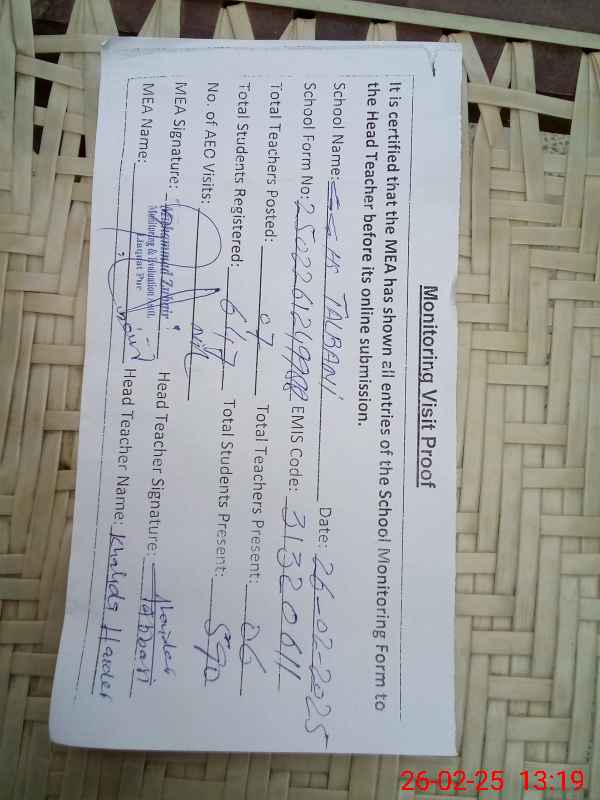 Monitoring Visit Proof
It is certified that the MEA has shown all entries of the School Monitoring Form to
the Head Teacher before its online submission.
School Name: GGHS TALBANI Date: 26-02-2025
School Form No: EMIS Code: 31320611
Total Teachers Posted: 07 Total Teachers Present: 06
Total Students Registered: 647 Total Students Present: 590
No. of AEC Visits: nil
MEA Signature: Head Teacher Signature: Haider
MEA Name: Head Teacher Name: Khalida Haider
Muhammad Zubair
Monitoring & Evaluation Asstt.
Liaqat Pur
26-02-25 13:19